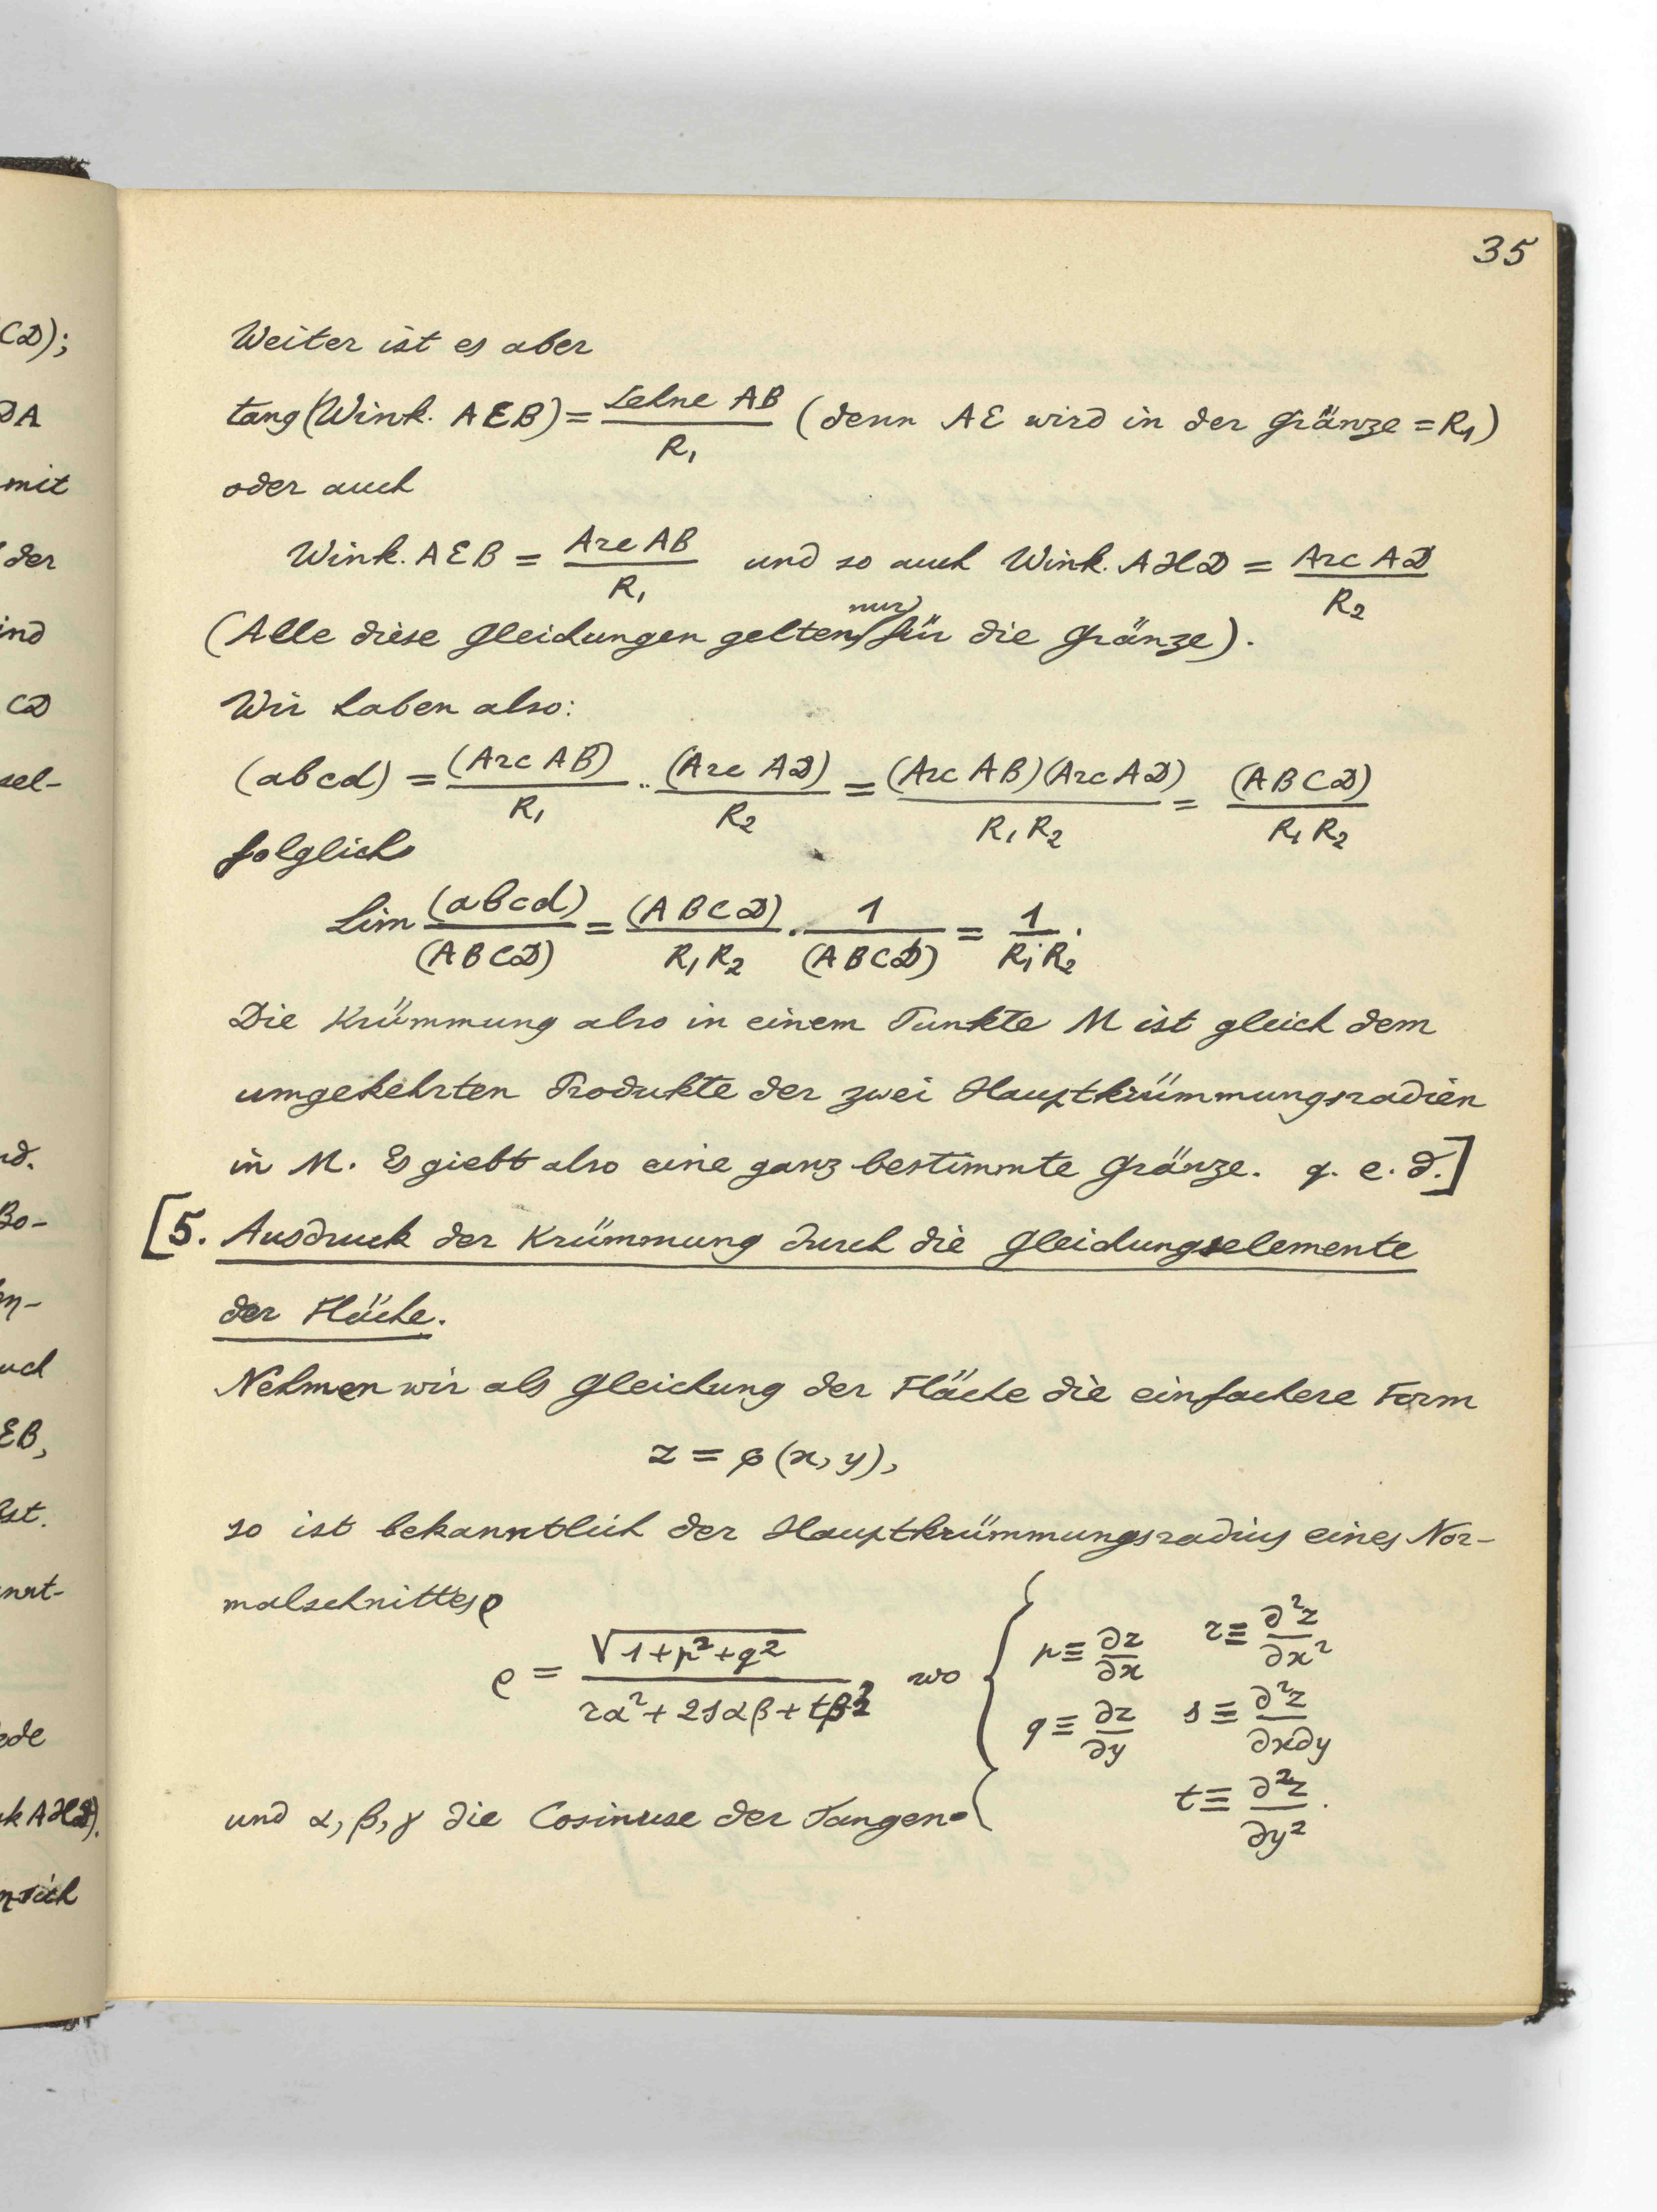 35
Weiter ist es aber
tang (Wink. AEB) = Sehne AB / R₁ (denn AE wird in der Gränze = R₁)
oder auch
Wink. AEB = Arc AB / R₁ und so auch Wink. AHD = Arc AD / R₂
(Alle diese Gleichungen gelten nur für die Gränze).
Wir haben also:
(abcd) = (Arc AB) / R₁ · (Arc AD) / R₂ = (Arc AB)(Arc AD) / R₁ R₂ = (ABCD) / R₁ R₂
folglich
Lim (abcd) / (ABCD) = (ABCD) / R₁ R₂ · 1 / (ABCD) = 1 / R₁·R₂.
Die Krümmung also in einem Punkte M ist gleich dem
umgekehrten Produkte der zwei Hauptkrümmungsradien
in M. Es giebt also eine ganz bestimmte Gränze. q. e. d.]
[5. Ausdruck der Krümmung durch die Gleichungselemente
der Fläche.
Nehmen wir als Gleichung der Fläche die einfachere Form
z = φ(x, y),
so ist bekanntlich der Hauptkrümmungsradius eines Nor-
malschnittes ρ
ρ = √1+p²+q² / rα² + 2sαβ + tβ², wo { p ≡ ∂z/∂x r ≡ ∂²z/∂x²
q ≡ ∂z/∂y s ≡ ∂²z/∂x∂y
t ≡ ∂²z/∂y².
und α, β, γ die Cosinuse der Tangen-
CD);
DA
mit
der
ind
CD
sel-
nd.
Bo-
en-
uch
EB,
ede
k AHD).